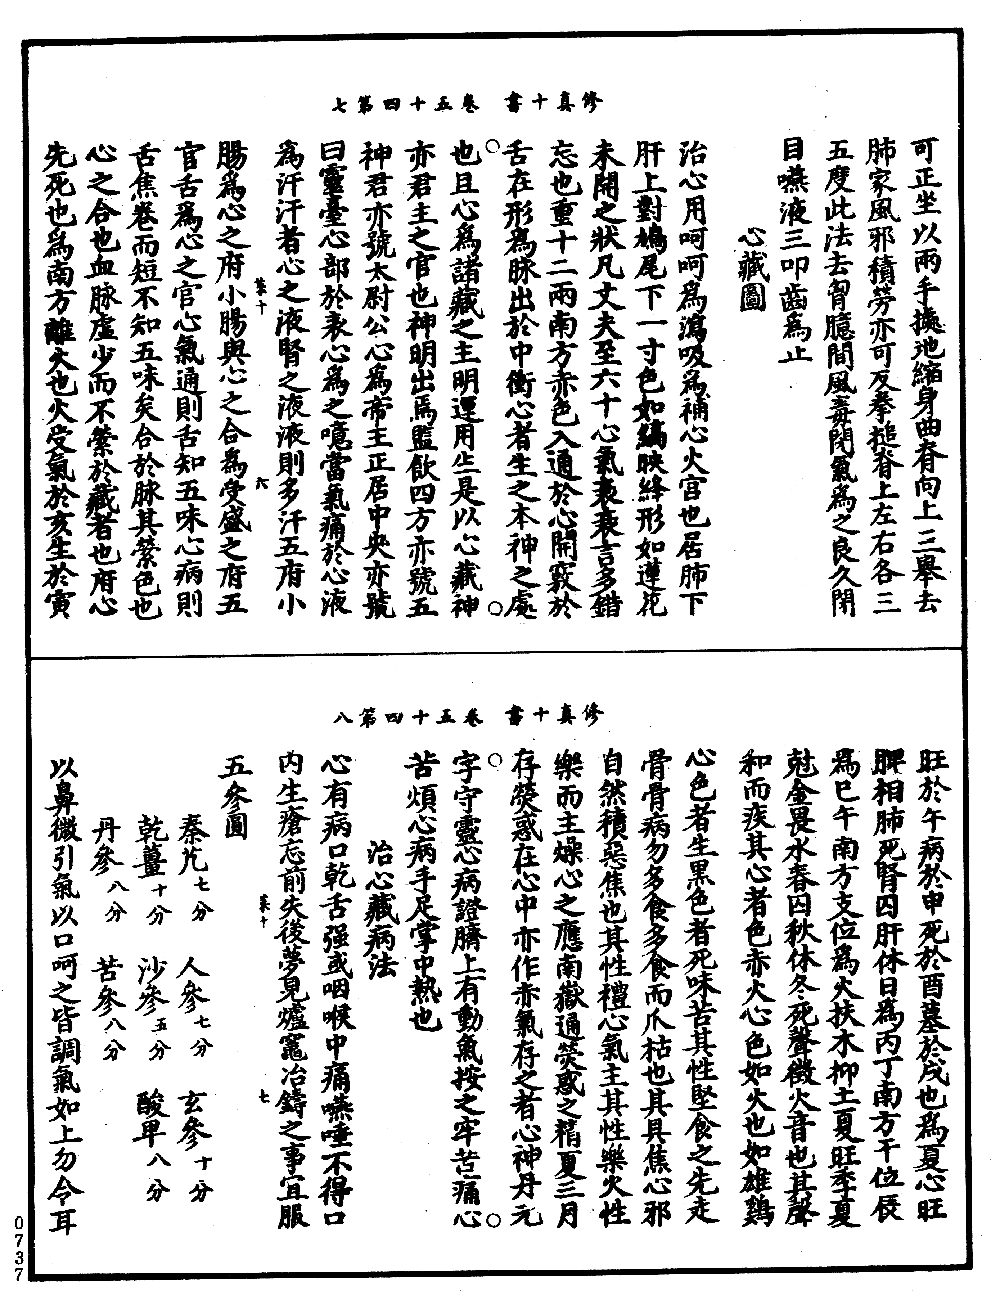 修真十書　卷五十四第七
可正坐以兩手擽地縮身曲脊向上三舉去
肺家風邪積勞亦可反拳搥脊上左右各三
五度此法去胷臆間風毒閉氣爲之良久閉
目嚥液三叩齒爲止
心藏圖
治心用呵呵爲瀉吸爲補心火宮也居肺下
肝上對鳩尾下一寸色如縞映絳形如蓮花
未開之狀凡丈夫至六十心氣衰衰言多錯
忘也重十二兩南方赤色入通於心開竅於
舌在形爲脉出於中衝心者生之本神之處
也且心爲諸藏之主明運用生是以心藏神
亦君主之官也神明出焉監飲四方亦號五
神君亦號太尉公心爲帝王正居中央亦號
曰靈臺心部於表心爲之噫當氣痛於心液
爲汗汗者心之液腎之液液則多汗五府小
菜十　六
腸爲心之府小腸與心之合爲受盛之府五
官舌爲心之官心氣通則舌知五味心病則
舌焦卷而短不知五味矣合於脉其縈色也
心之合也血脉虛少而不縈於藏者也府心
先死也爲南方離火也火受氣於亥生於寅
修真十書　卷五十四第八
旺於午病於申死於酉墓於戌也爲夏心旺
脾相肺死腎囚肝休日爲丙丁南方干位辰
爲巳午南方支位爲火扶木抑土夏旺季夏
尅金畏水春囚秋休冬死聲徵火音也其聲
和而疾其心者色赤火心色如火也如雄鷄
心色者生黑色者死味苦其性堅食之先走
骨骨病勿多食多食而爪枯也其具焦心邪
自然積惡焦也其性禮心氣主其性樂火性
樂而主燥心之應南嶽通熒惑之精夏三月
存熒惑在心中亦作赤氣存之者心神丹元
字守靈心病證臍上有動氣按之牢苦痛心
苦煩心病手足掌中熱也
治心藏病法
心有病口乾舌强或咽喉中痛嚥唾不得口
內生瘡忘前失後夢見爐竈冶鑄之事宜服
菜十　七
五參圓
秦艽七分　人參七分　玄參十分
乾薑十分　沙參五分　酸早八分
丹參八分　苦參八分
以鼻微引氣以口呵之皆調氣如上勿令耳
0737